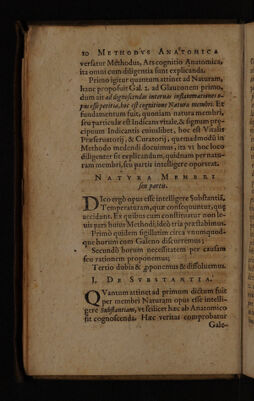 10 METHODVS ANATOMICA
versatur Methodus, Ars cognitio Anatomica,
ita omni cum diligentia sunt explicanda.
Primo igitur quantum attinet ad Naturam,
hanc proposuit Gal. 2. ad Glauconem primo,
dum ait ad dignoscendas internas inflammationes o-
pus esse peritia, hoc est cognitione Natura membri. Et
fundamentum fuit, quoniam natura membri,
seu particulæ est Indicans vitale, & signum præ-
cipuum Indicantis cuiuslibet, hoc est Vitalis
Præseruatorij, & Curatorij, quemadmodũ in
Methodo medendi docuimus, ita vt hoc loco
diligenter sit explicandum, quidnam per natu-
ram membri, seu partis intelligere oporteret.
NATVRA MEMBRI
seu partis.
DIco ergo opus esse intelligere Substantiã,
Temperaturam, quæ consequuntur, quę
accidant. Ex quibus cum constituatur non le-
uis pars huius Methodi, ideò tria præstabimus.
Primò quidem sigillatim circa vnumquod-
que horum cum Galeno discurremus;
Secundò horum necessitatem per causam
seu rationem proponemus;
Tertio dubia & proponemus & dissoluemus.
I. DE SVBSTANTIA.
QVantum attinet ad primum dictum fuit
per membri Naturam opus esse intelli-
gere Substantiam, vt scilicet hæc ab Anatomico
sit cognoscenda. Hæc veritas comprobatur
Gale-